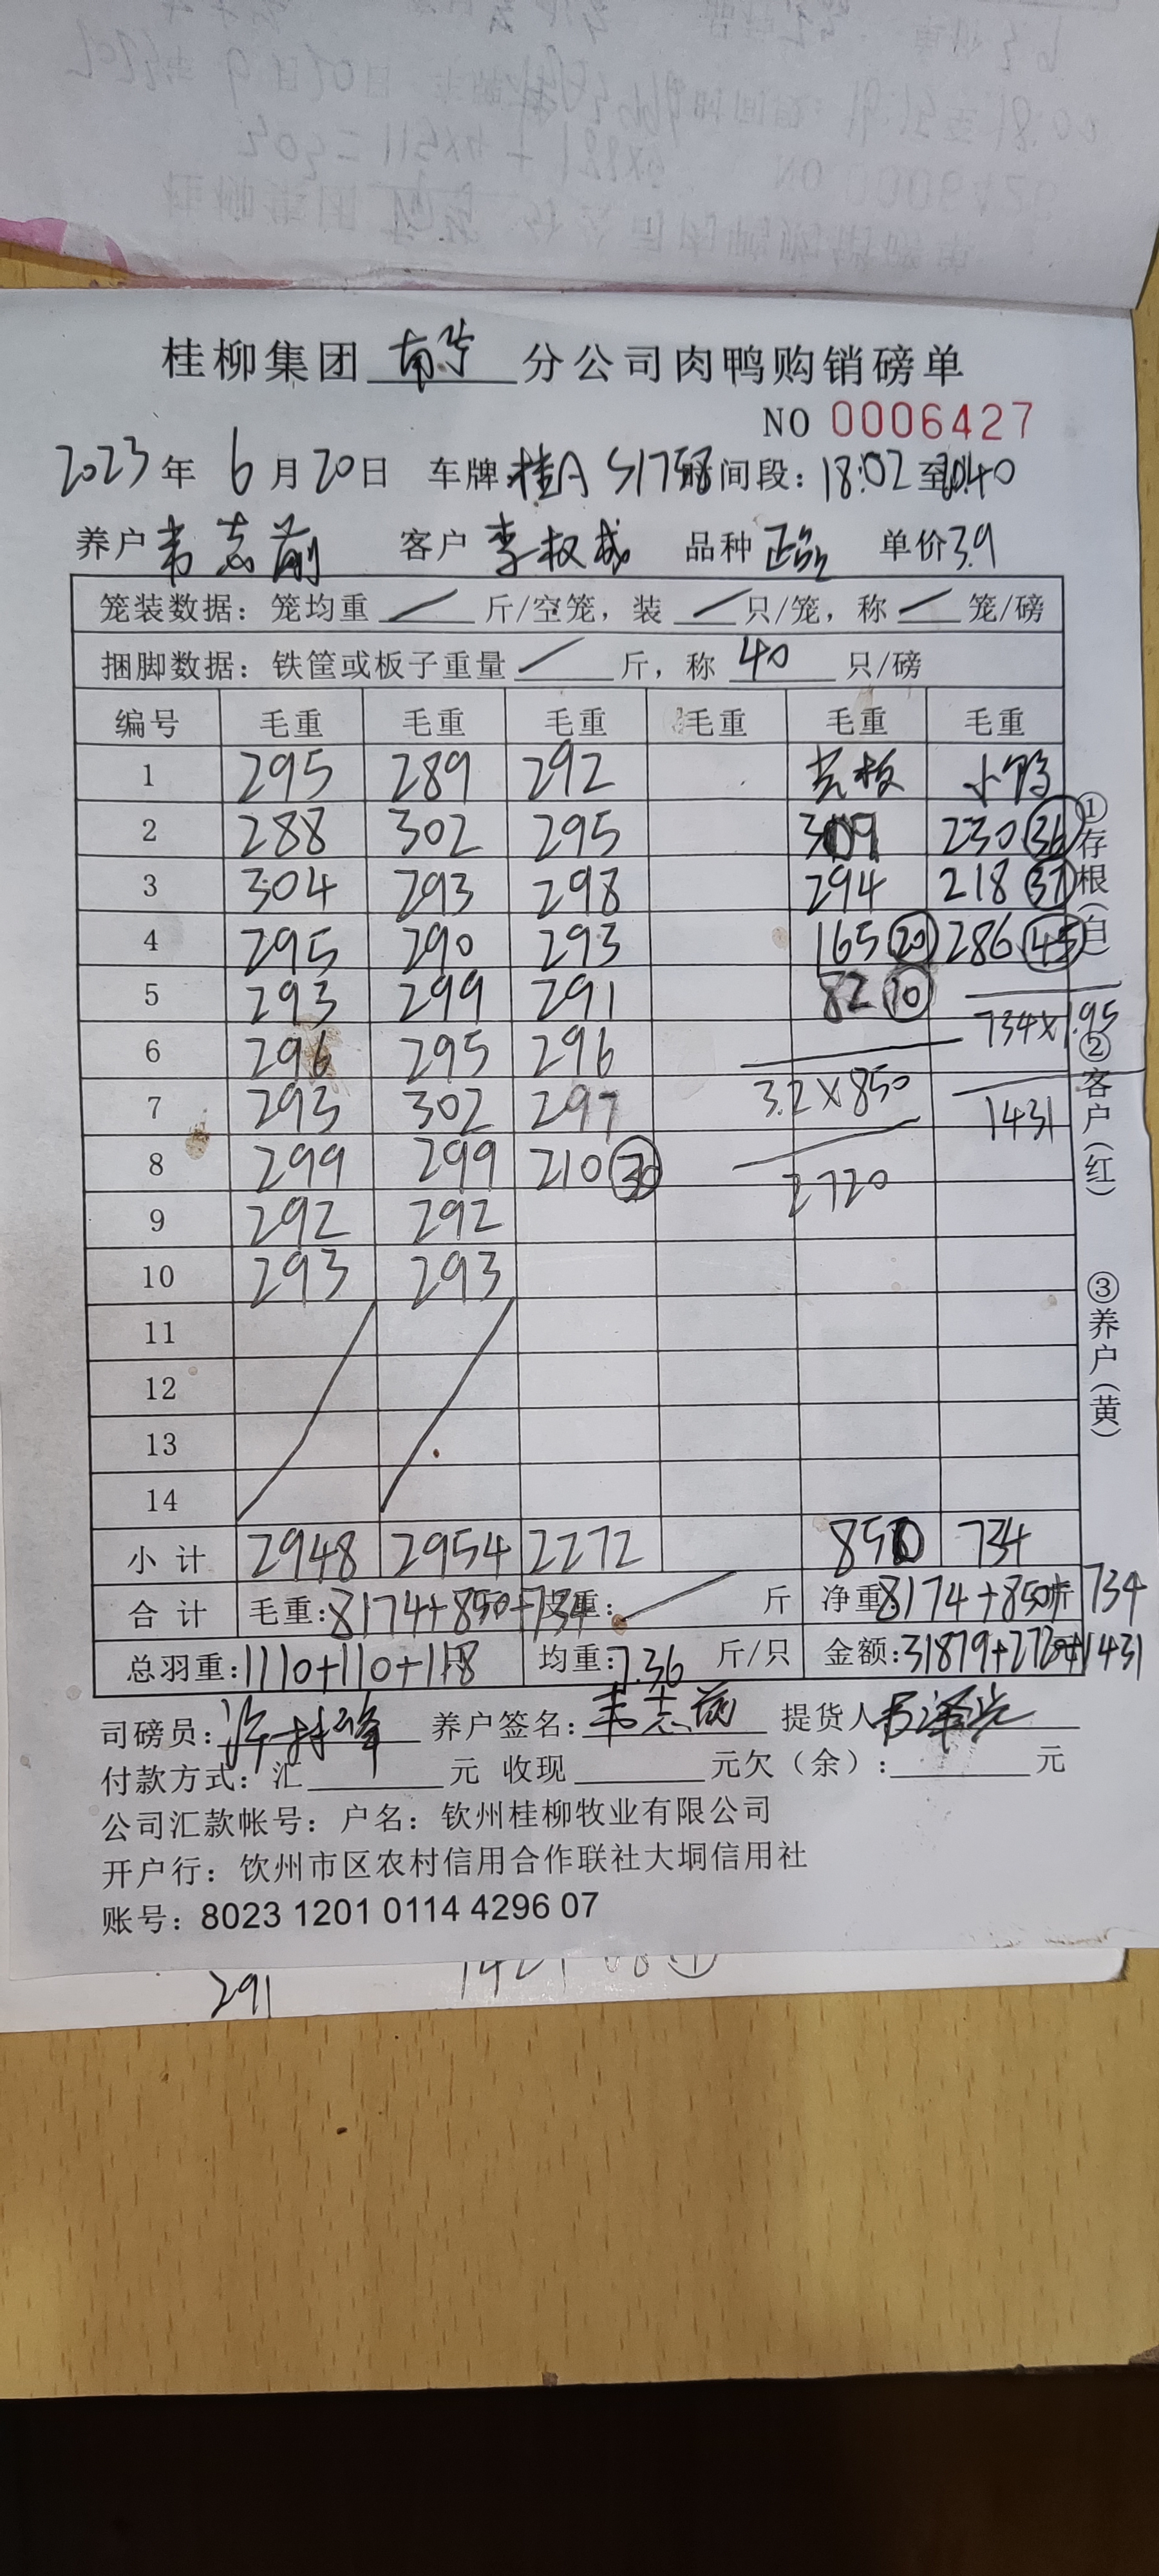 桂柳集团 南宁 分公司肉鸭购销磅单
NO 0006427
2023年 6月20日 车牌:桂A S1758 时间段:18:02至20:40
养户 韦志前 客户 李权成 品种 单价3.9
笼装数据:笼均重 / 斤/空笼,装 / 只/笼,称 / 笼/磅
捆脚数据:铁筐或板子重量 / 斤,称 40 只/磅
编号 毛重 毛重 毛重 毛重 毛重 毛重
1 295 289 292 光板 小鸭
2 288 302 295 309 230 36
3 304 293 298 294 218 37
4 295 290 293 165 20 286 45
5 293 299 291 82 10
6 296 295 296 734×1.95
7 293 302 297 3.2×850 1431
8 299 299 210 30 2720
9 292 292
10 293 293
11
12
13
14
小计 2948 2954 2272 850 734
合计 毛重:8174+850+734 皮重: / 斤 净重8174+850+734斤
总羽重:1110+110+118 均重:7.36 斤/只 金额:31879+2720+1431
司磅员: 养户签名:韦志前 提货人
付款方式:汇 元 收现 元欠(余): 元
公司汇款帐号:户名:钦州桂柳牧业有限公司
开户行:钦州市区农村信用合作联社大垌信用社
账号:8023 1201 0114 4296 07
①存根(白) ②客户(红) ③养户(黄)
291